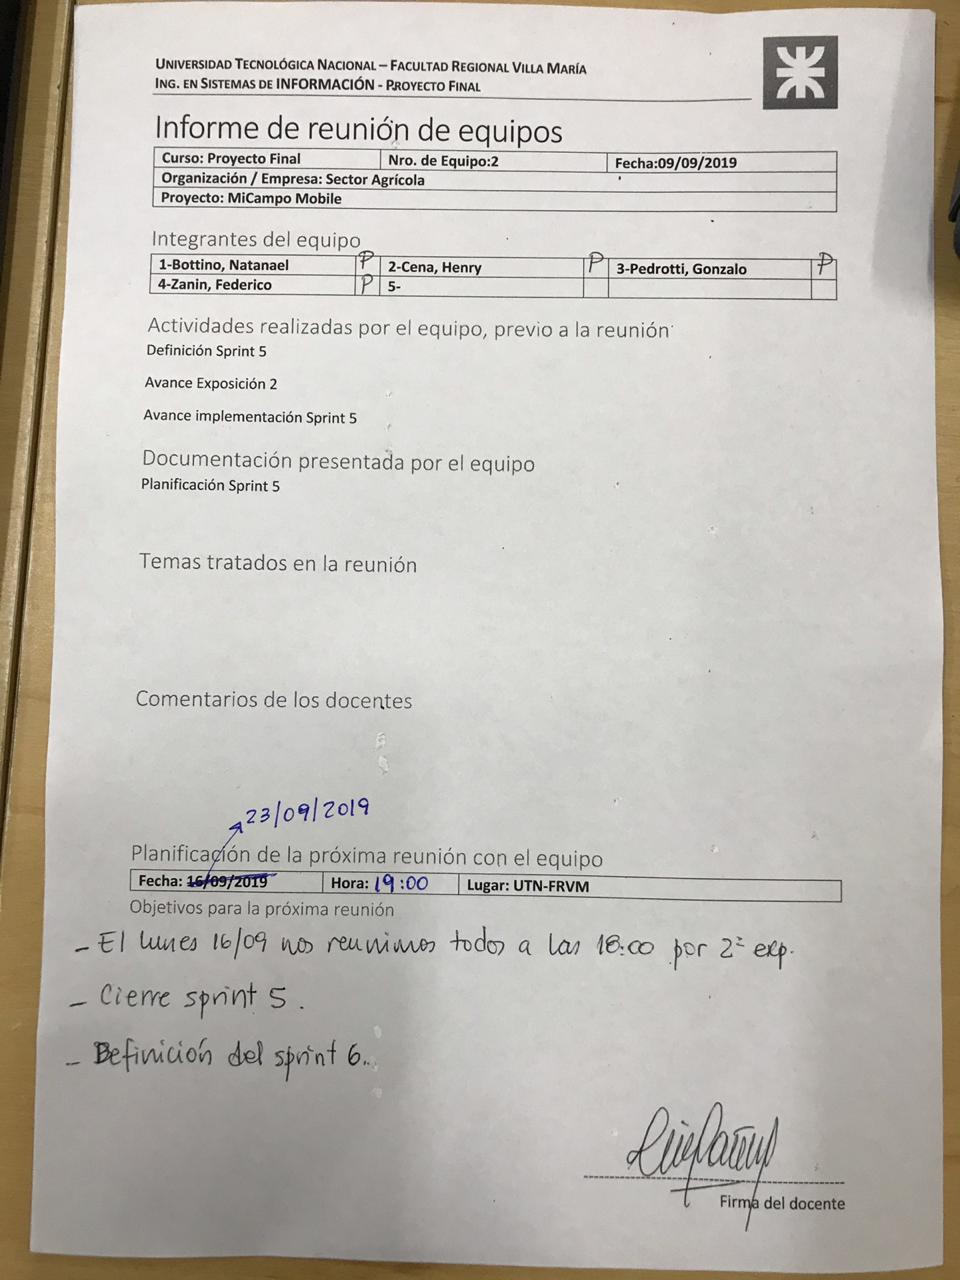 UNIVERSIDAD TECNOLÓGICA NACIONAL – FACULTAD REGIONAL VILLA MARÍA
ING. EN SISTEMAS DE INFORMACIÓN - PROYECTO FINAL
Informe de reunión de equipos
Curso: Proyecto Final Nro. de Equipo:2 Fecha:09/09/2019
Organización / Empresa: Sector Agrícola
Proyecto: MiCampo Mobile
Integrantes del equipo
1-Bottino, Natanael P 2-Cena, Henry P 3-Pedrotti, Gonzalo P
4-Zanin, Federico P 5-
Actividades realizadas por el equipo, previo a la reunión
Definición Sprint 5
Avance Exposición 2
Avance implementación Sprint 5
Documentación presentada por el equipo
Planificación Sprint 5
Temas tratados en la reunión
Comentarios de los docentes
23/09/2019
Planificación de la próxima reunión con el equipo
Fecha: 16/09/2019 Hora: 19:00 Lugar: UTN-FRVM
Objetivos para la próxima reunión
- El lunes 16/09 nos reunimos todos a las 18:00 por 2ª exp.
- Cierre sprint 5.
- Definición del sprint 6.
Firma del docente